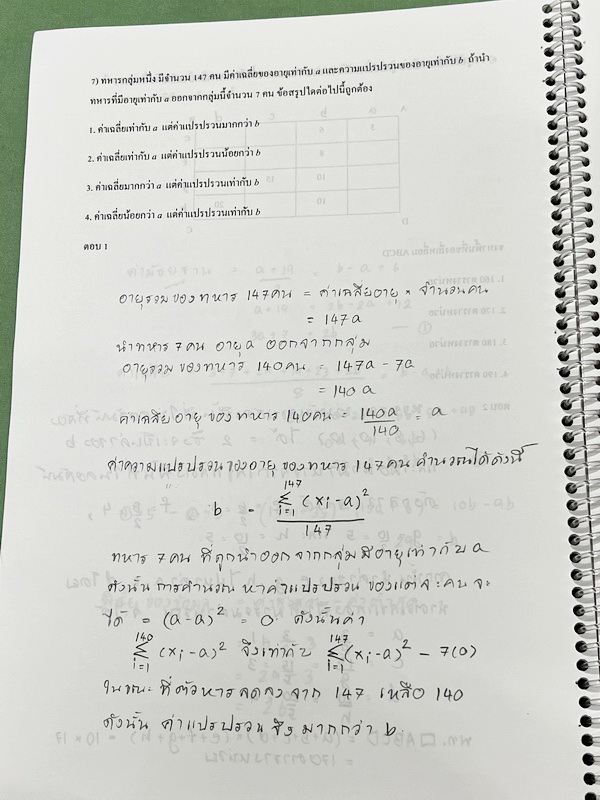 7) ทหารกลุ่มหนึ่ง มีจำนวน 147 คน มีค่าเฉลี่ยของอายุเท่ากับ a และความแปรปรวนของอายุเท่ากับ b ถ้านำ
ทหารที่มีอายุเท่ากับ a ออกจากกลุ่มนี้จำนวน 7 คน ข้อสรุปใดต่อไปนี้ถูกต้อง
1. ค่าเฉลี่ยเท่ากับ a แต่ค่าแปรปรวนมากกว่า b
2. ค่าเฉลี่ยเท่ากับ a แต่ค่าแปรปรวนน้อยกว่า b
3. ค่าเฉลี่ยมากกว่า a แต่ค่าแปรปรวนเท่ากับ b
4. ค่าเฉลี่ยน้อยกว่า a แต่ค่าแปรปรวนเท่ากับ b
ตอบ 1
อายุรวมของทหาร 147 คน = ค่าเฉลี่ยอายุ × จำนวนคน
= 147a
นำทหาร 7 คน อายุ a ออกจากกลุ่ม
อายุรวมของทหาร 140 คน = 147a - 7a
= 140a
ค่าเฉลี่ยอายุของทหาร 140 คน = 140a/140 = a
ค่าความแปรปรวนของอายุของทหาร 147 คน คำนวณได้ดังนี้
b = 147 Σ i=1 (xi - a)² / 147
ทหาร 7 คน ที่ถูกนำออกจากกลุ่มมีอายุเท่ากับ a
ดังนั้น การคำนวณหาค่าแปรปรวนของแต่ละคนจะ
ได้ = (a-a)² = 0 ดังนั้นค่า
140 Σ i=1 (xi - a)² จึงเท่ากับ 147 Σ i=1 (xi - a)² - 7(0)
ในขณะที่ตัวหารลดลงจาก 147 เหลือ 140
ดังนั้น ค่าแปรปรวนจึงมากกว่า b